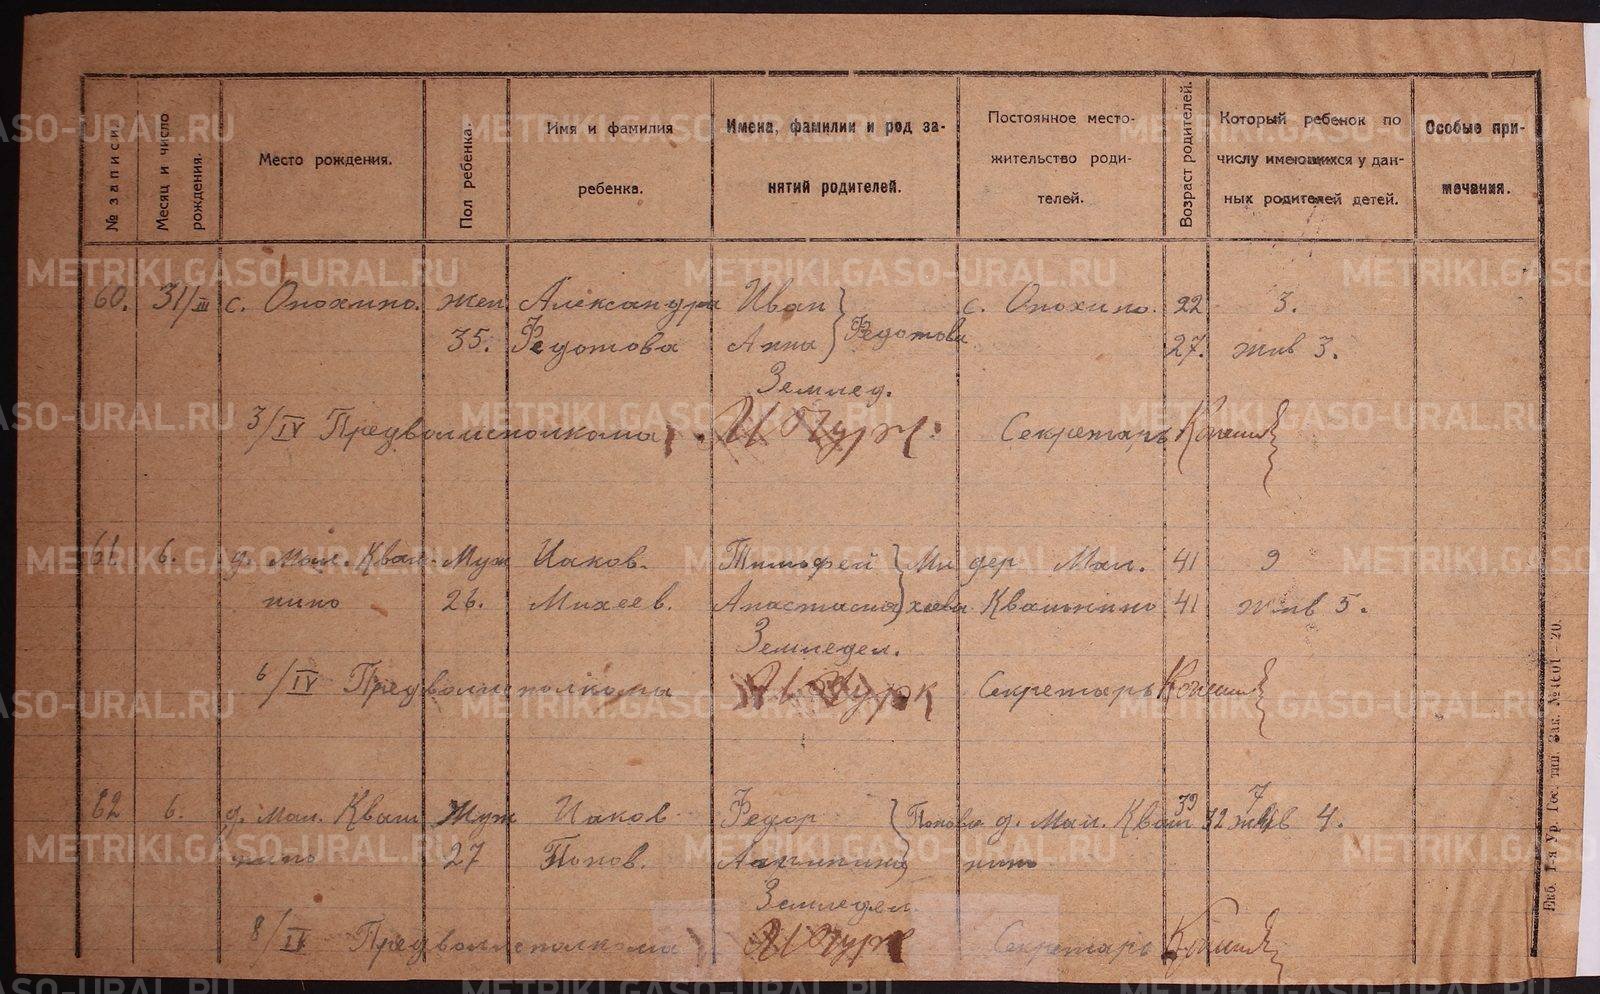 № записи.
Месяц и число рождения.
Место рождения.
Пол ребенка.
Имя и фамилия
ребенка.
Имена, фамилии и род за-
нятий родителей.
Постоянное место-
жительство роди-
телей.
Возраст родителей.
Который ребенок по
числу имеющихся у дан-
ных родителей детей.
Особые при-
мечания.
60. 31/III с. Опохино. жен. Александра Иван с. Опохино. 22 3.
35. Федотова Анна Федотовы 27. жив 3.
Землед.
3/IV Предволисполкома Секретарь
61 6. д. Мал. Кваш- Муж Иаков. Тимофей Ми дер Мал. 41 9
нино 26. Михеев. Анастасия хеевы Квашнино 41 жив 5.
Земледел.
6/IV Предволисполкома Секретарь
62 6. д. Мал. Кваш Муж Иаков Федор Поповы д. Мал. Кваш 39 32 7 жив 4.
нино 27 Попов. нино
Земледел.
8/IV Предволисполкома Секретарь
Екб. 1-я Ур. Гос. тип. Зак. № 1601—20.
METRIKI.GASO-URAL.RU